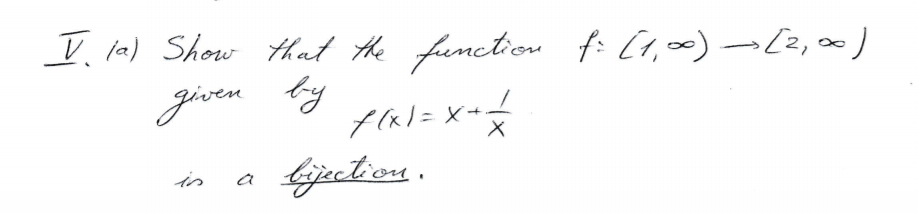 V. (a) Show that the function f: [1,∞) → [2,∞)
given by
f(x) = x + 1/x
is a bijection.